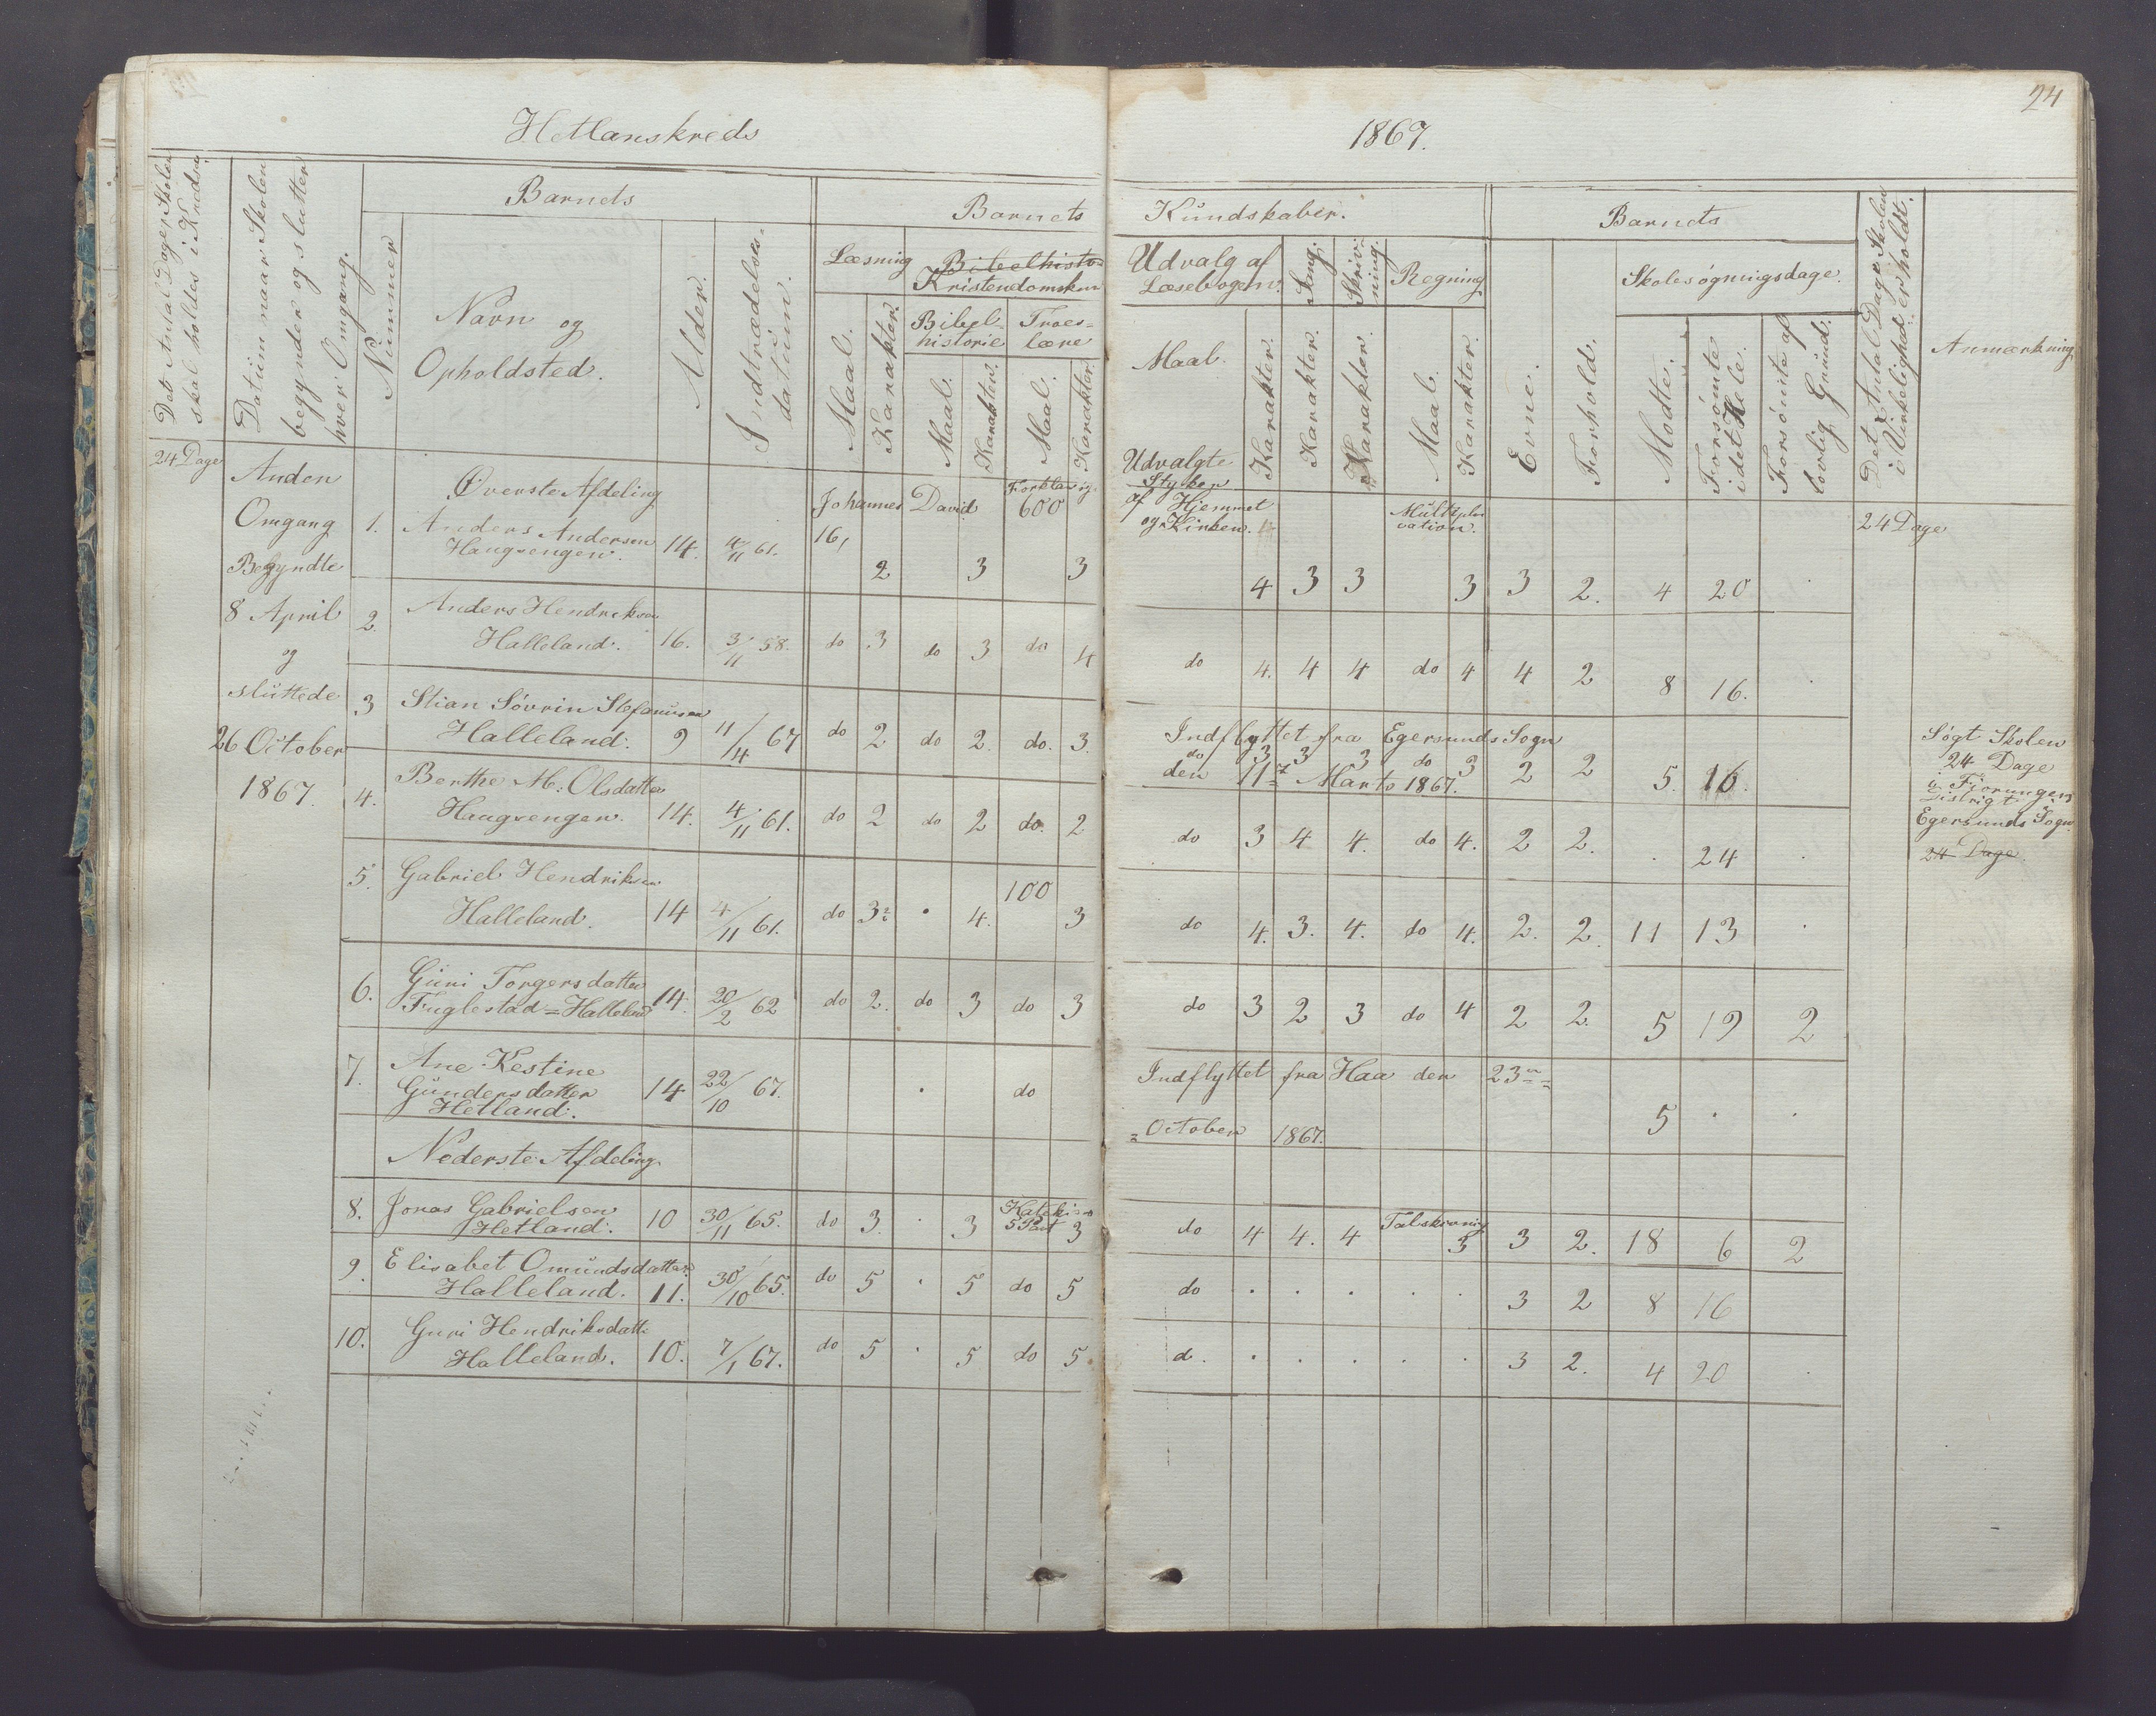 24
Hetlanskreds
1867.
Det Antal Dage, Skolen
skal holdes i Kredsen
Datüm naar Skolen
begynder og slutter
hver Omgang.
Barnets
Nummer
Navn og
Opholdsted.
Alder.
Indtrædelses-
datüm.
Barnets Kündskaber.
Læsning
Maal. Karakter.
Kristendomskun
Bibel-
historie
Maal. Karakter.
Troes-
lære
Maal. Karakter.
Udvalg af
Læsebogen.
Maal. Karakter.
Sang.
Karakter.
Skriv-
ning.
Karakter.
Regning
Maal. Karakter.
Barnets
Evne.
Forhold.
Skolesøgningsdage.
Mødte.
Forsömte
idet Hele.
Forsömte af
lovlig Gründ.
Det Antal Dage Skolen
i Virkelighed er holdt.
Anmærkning
24 Dage
Anden
Omgang
Begyndte
8 April
og
slüttede
26 October
1867.
Øverste Afdeling
Johannes David 600
16,
Udvalgte
Stykker
af Hjemmet
og Kirken.
24 Dage
1. Anders Andersen
Haugvengen. 14. 4/11 61. 2 3 3 4 3 3 3 3 2. 4 20 .
2. Anders Hendriksen
Halleland. 16. 3/11 58. do 3 do 3 do 4 do 4. 4 4 do 4 4 2 8 16. .
3 Stian Sövrin Stefanusen
Halleland. 9 11/4 67 do 2 do 2. do. 3.
Indflyttet fra Egersunds Sogn
do 3 3 3 do 3 2 2 5. 16.
den 11 Marts 1867.
Søgt Skolen
24 Dage
Egersunds Sogn
24 Dage.
4. Berthe M: Olsdatter
Haugvengen. 14. 4/11 61. do 2 do 2 do. 2 do 3 4 4. do 4. 2 2. . 24 .
5. Gabriel Hendriksen
Halleland. 14 4/11 61. do 3 . 4. 100 3 do 4. 3. 4. do 4. 2. 2. 11 13 .
6. Güri Torgersdatter
Fuglestad=Halleland 14. 20/2 62 do 2. do 3 do 3 do 3 2 3 do 4 2 2. 5 19 2
7. Ane Kestine
Gündersdatter
Hetland. 14 22/10 67. . do
Indflyttet fra Haa den 23
October 1867. 5 . .
Nederste Afdeling.
8. Jonas Gabrielsen
Hetland. 10 30/11 65. do 3. . 3 5 Part 3 do 4 4. 4 3 3 2. 18 6 2
9. Elisabet Omündsdatter
Halleland. 11. 30/10 65. do 5 . 5 do 5 do . . . . . 3 2 8 16
10. Guri Hendriksdatt:
Halleland. 10. 7/1 67. do 5 . 5 do 5. d. . . . . . 3 2. 4 20 .